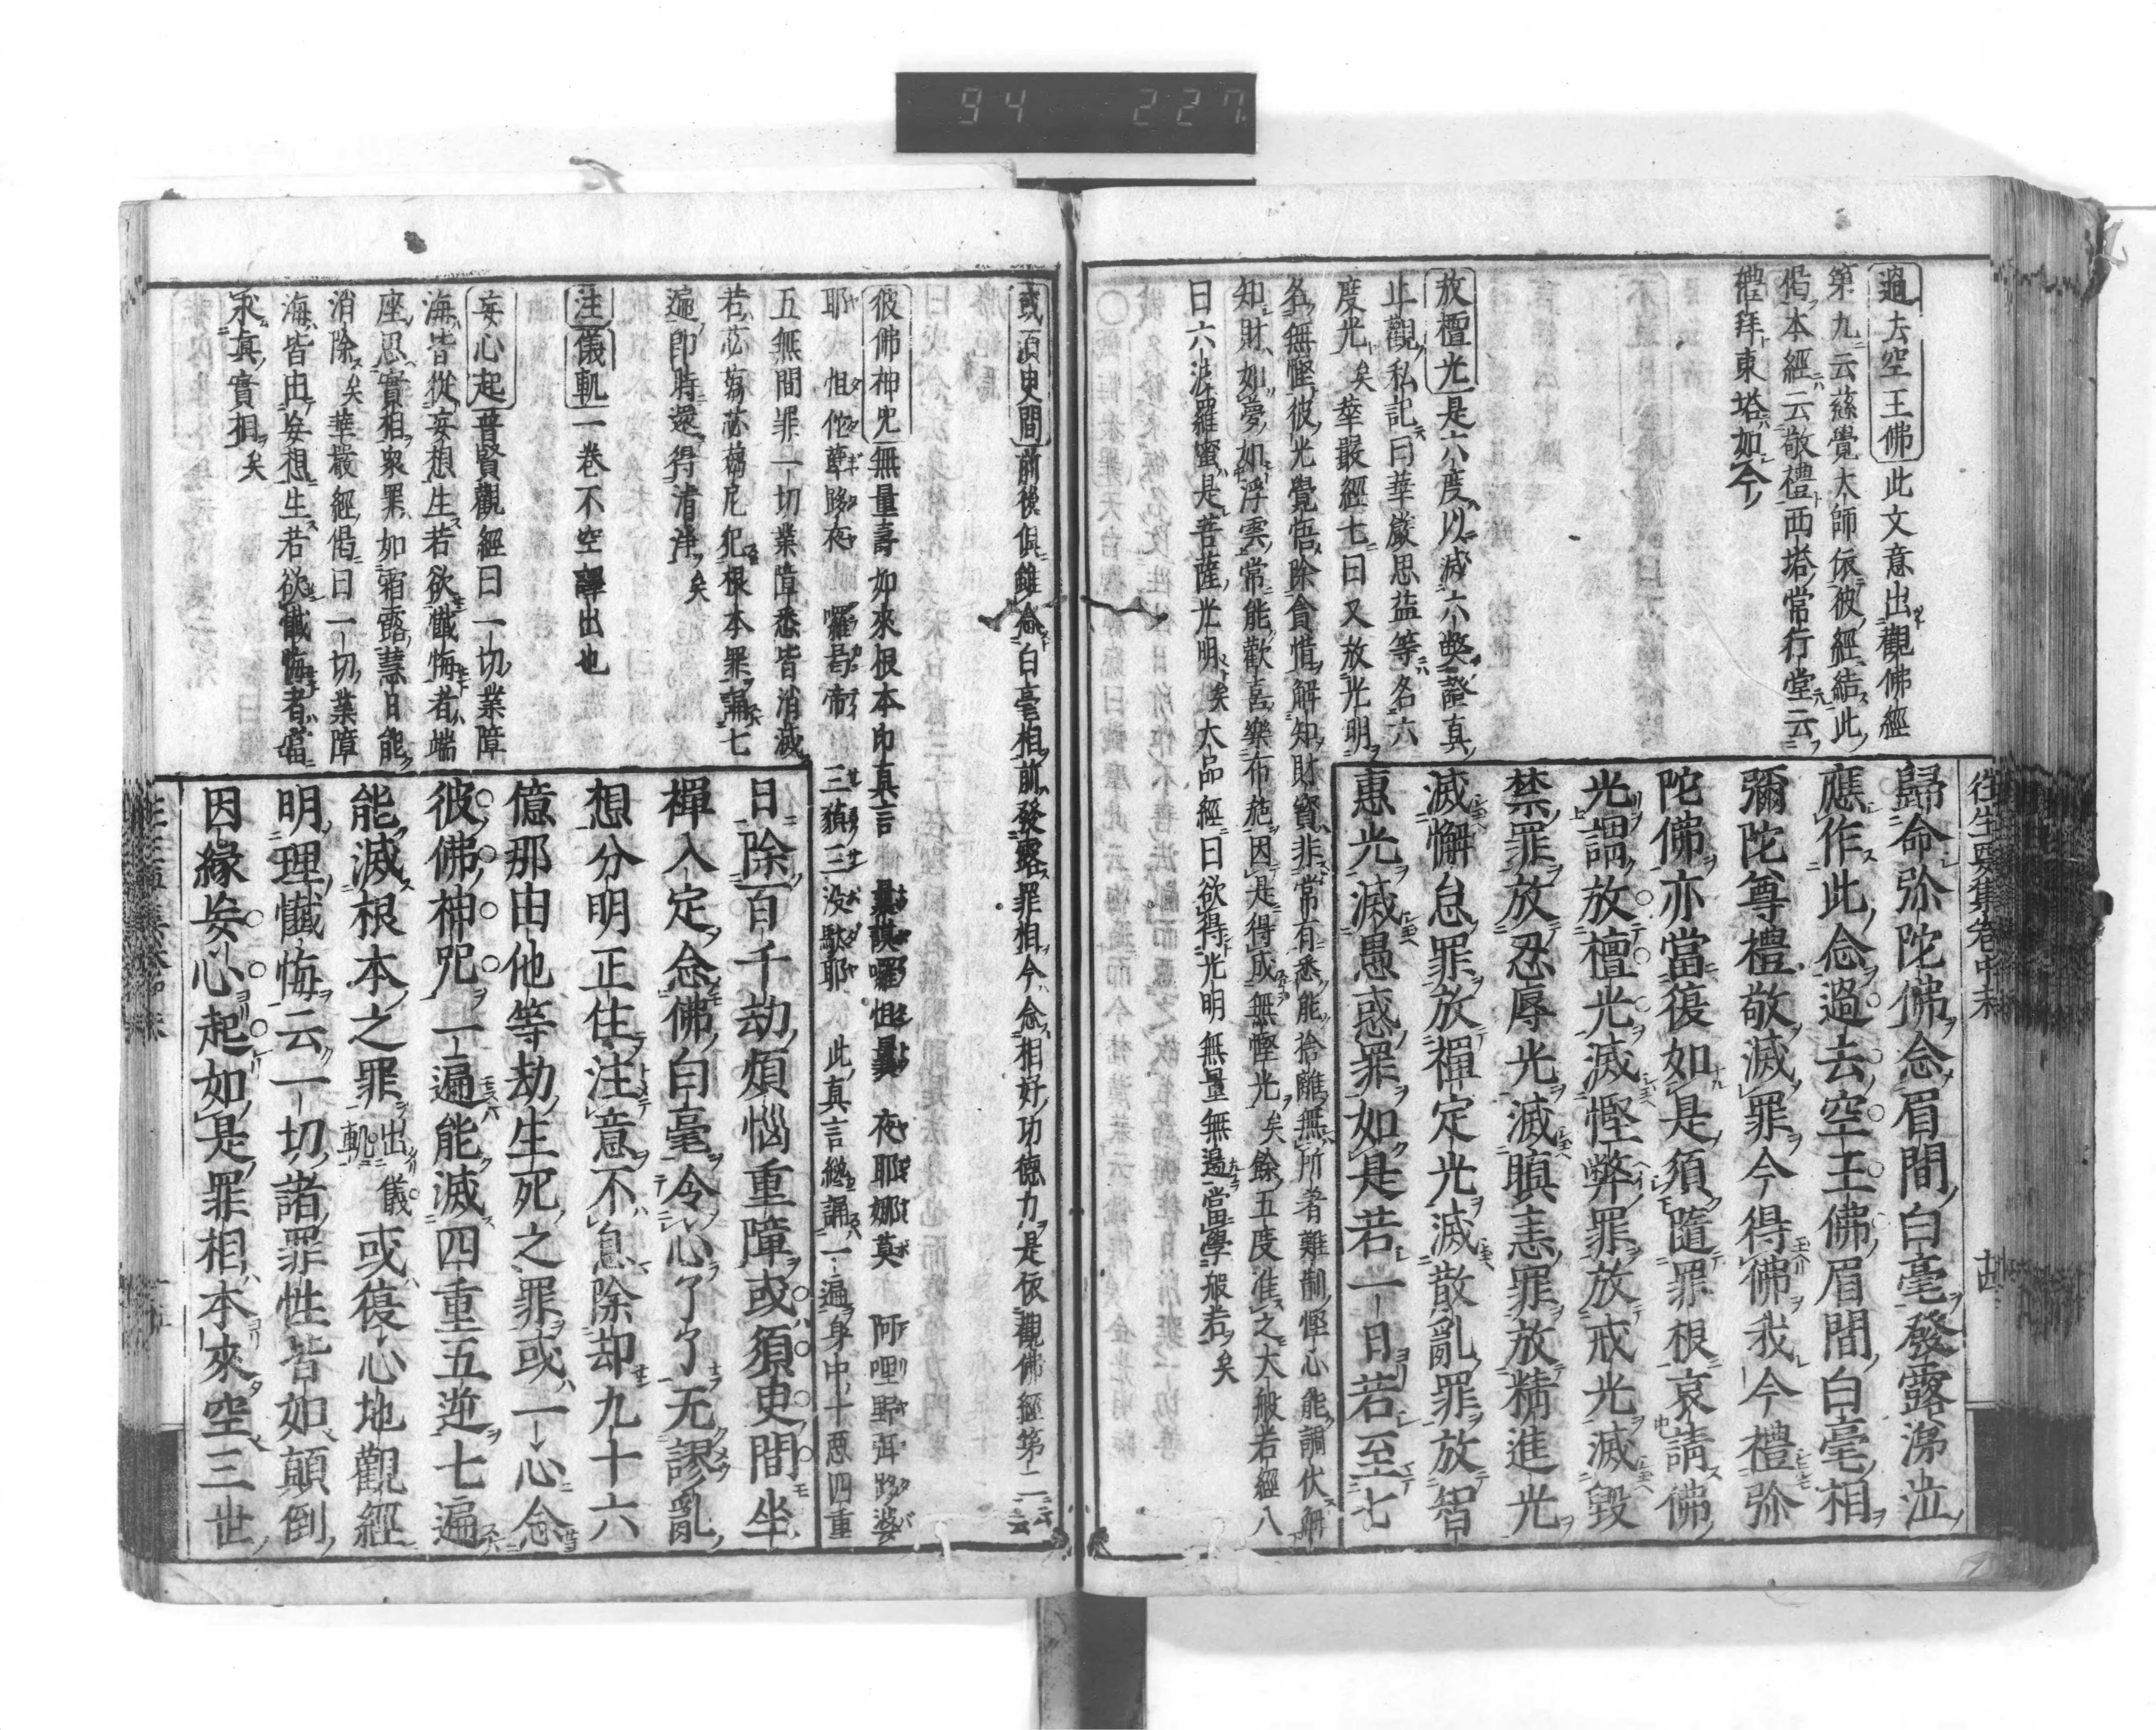 94 227
往生要集卷中末 十四
過去空王佛此文意出觀佛經
第九云慈覺大師依彼經結此
偈本經云敬禮西塔常行堂云
禮拜東塔如今
放檀光是六度以滅六弊證真
止觀私記曰華嚴思益等名六
度光矣華嚴經七曰又放光明
名無慳彼光覺悟除貪惜解知財寶非常有悉能捨離無所著難制慳心能調伏解
知財如夢如浮雲常能歡喜樂布施因是得成無慳光矣餘五度准之大般若經八
曰六波羅蜜是菩薩光明矣大品經曰欲得光明無量無邊當學般若矣
歸命弥陀佛念眉間白毫發露涕泣
應作此念過去空王佛眉間白毫相
彌陀尊禮敬滅罪今得佛我今禮弥
陀佛亦當復如是須隨罪根哀請佛
光謂放檀光滅慳弊罪放戒光滅毀
禁罪放忍辱光滅瞋恚罪放精進光
滅懈怠罪放禪定光滅散亂罪放智
惠光滅愚惑罪如是若一日若至七
或須臾間前後俱雖念白毫相前發露罪相今念相好功德力是依觀佛經第二云云
彼佛神咒無量壽如來根本印真言 曩謨囉怛曩 夜耶娜莫 阿哩野弭路婆
耶 怛他蘖路夜 囉曷帝 三藐三沒馱耶 此真言纔誦一遍身中十惡四重
五無間罪一切業障悉皆消滅
若苾蒭苾蒭尼犯根本罪誦七
遍即時還得清淨矣
注儀軌一卷不空譯出也
妄心起普賢觀經曰一切業障
海皆從妄想生若欲懺悔者端
座思實相衆罪如霜露慧日能
消除矣華嚴經偈曰一切業障
海皆由妄想生若欲懺悔者當
求真實相矣
日除百千劫煩惱重障或須臾間坐
禪入定念佛白毫令心了了无謬亂
想分明正住注意不息除却九十六
億那由他等劫生死之罪或一心念
彼佛神咒一遍能滅四重五逆七遍
能滅根本之罪出儀軌或復心地觀經
明理懺悔云一切諸罪性皆如顛倒
因緣妄心起如是罪相本來空三世